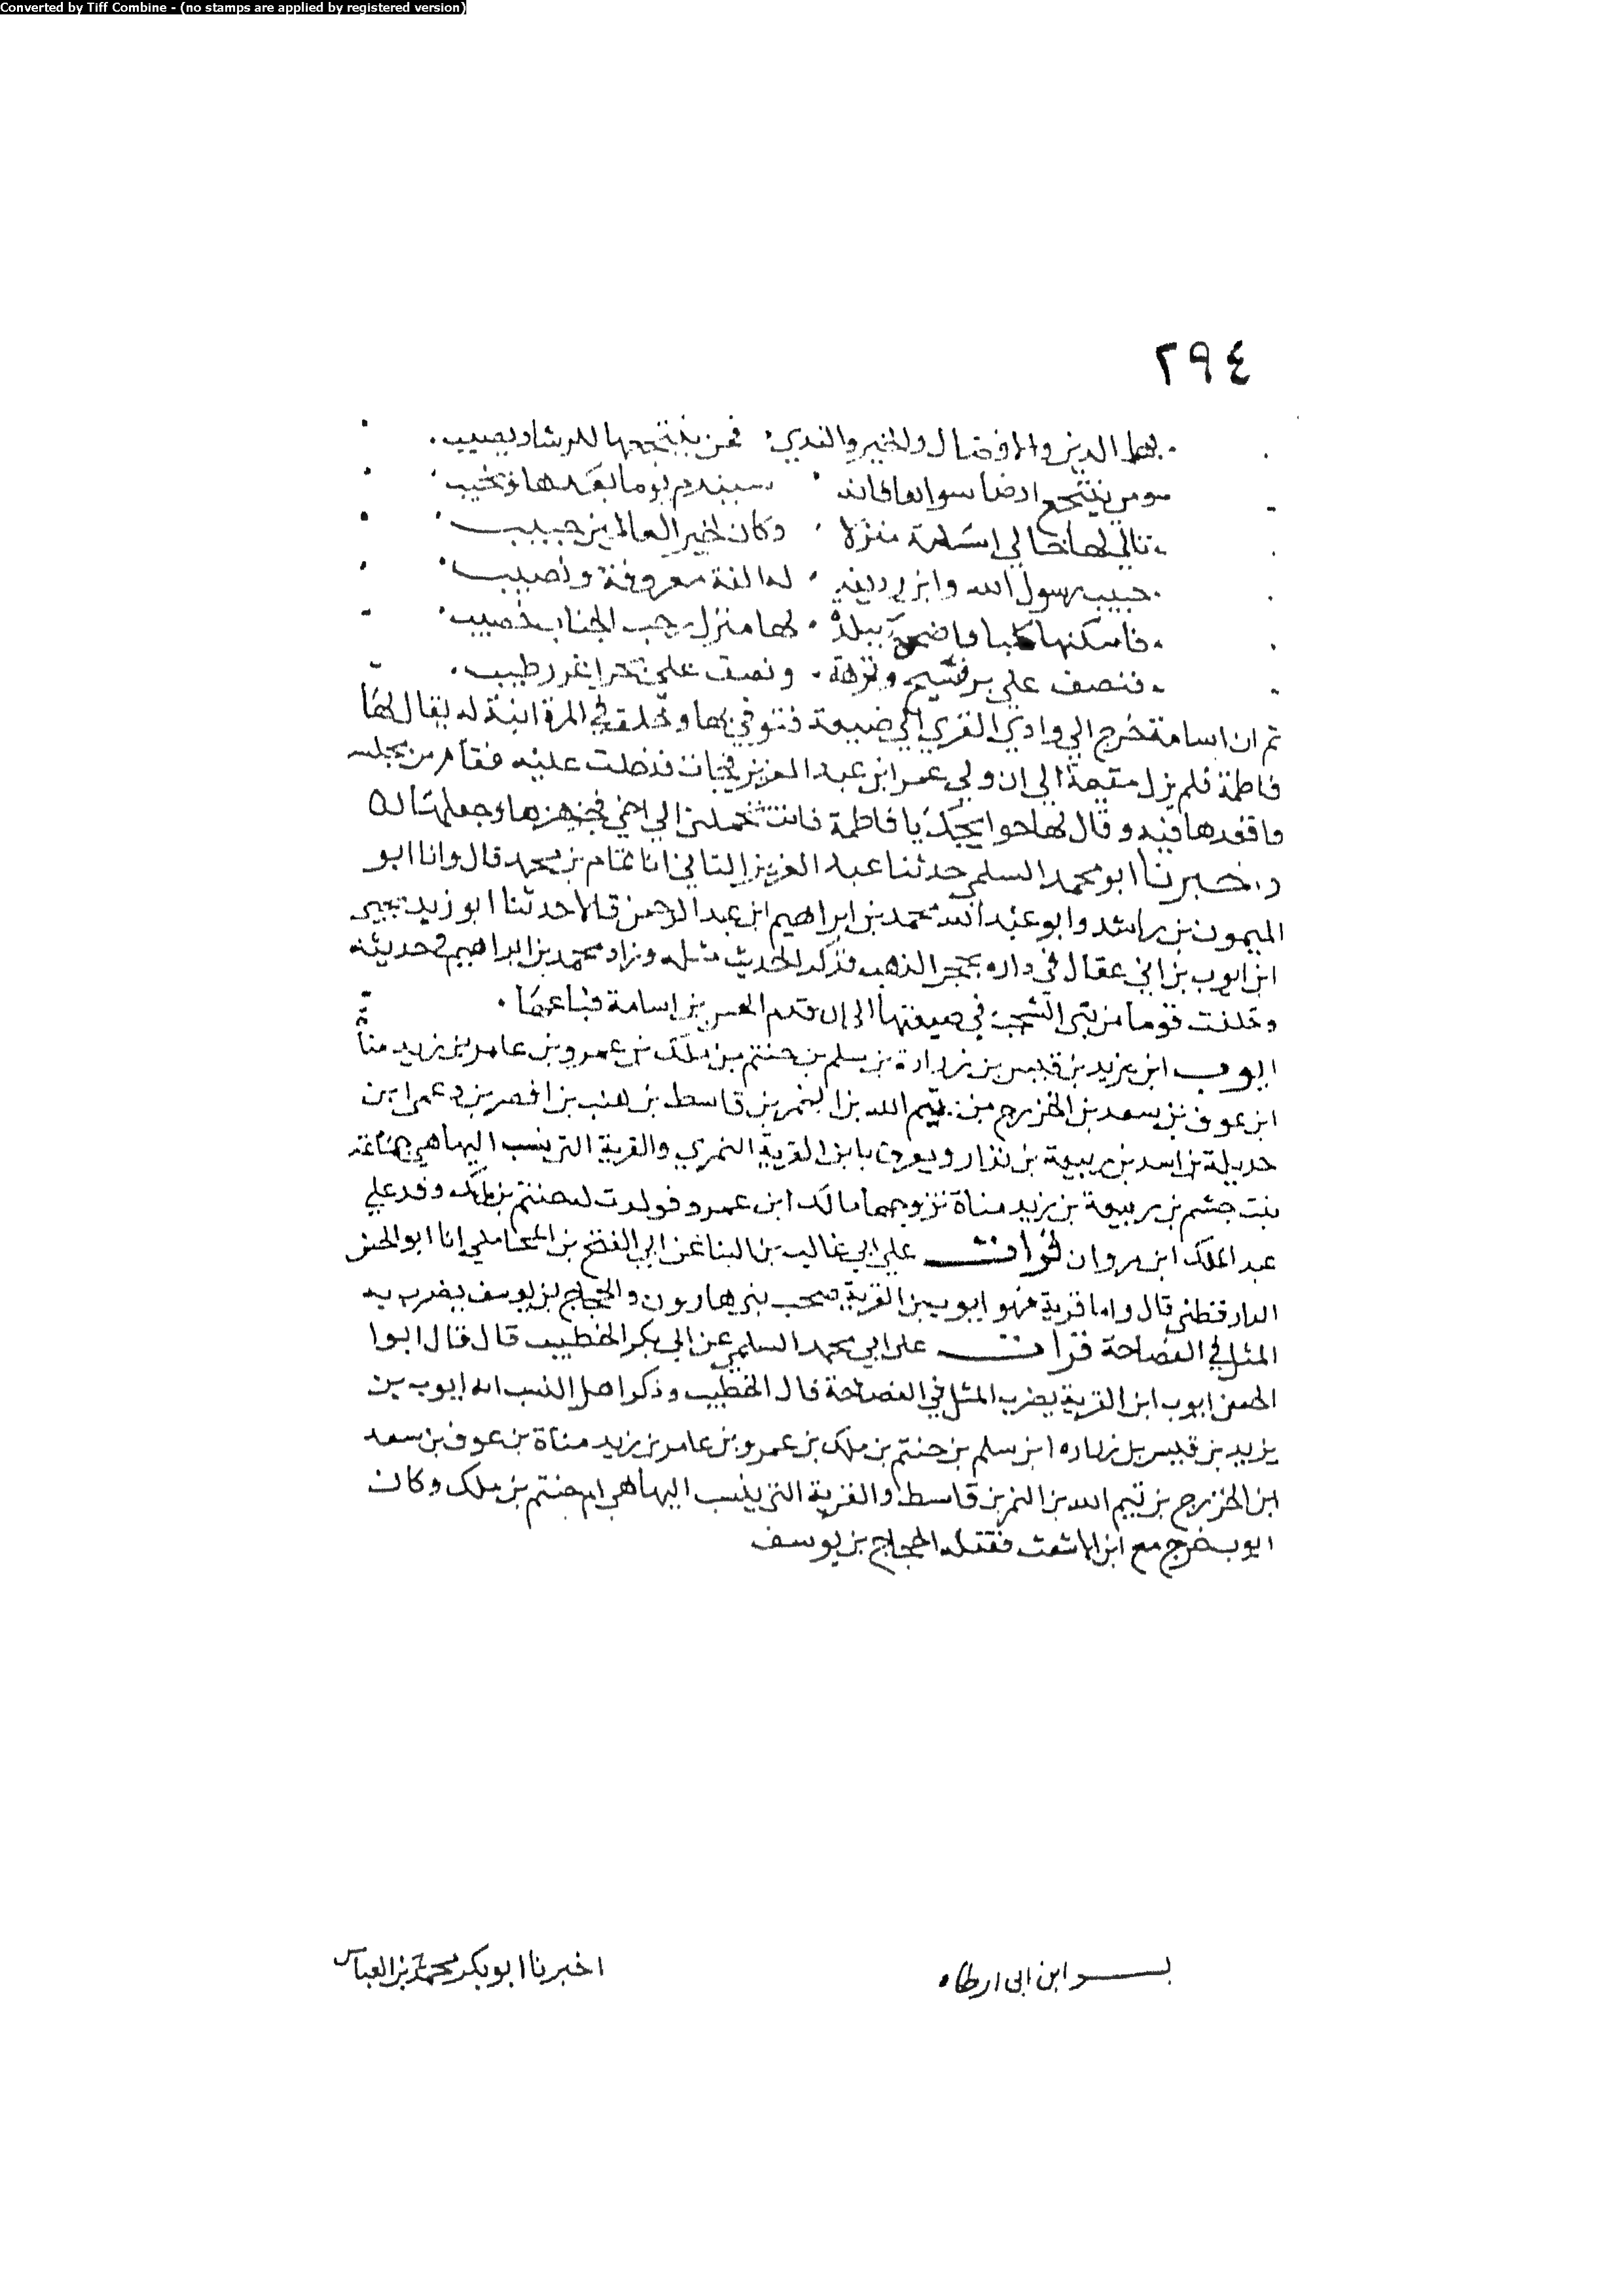 Converted by Tiff Combine - (no stamps are applied by registered version)
٢٩٤
بها الدين والافضال والخير والندي فمن ينتجعها للرشاد يصيب
ومن ينتجع ارضا سواها فانه سيندم يوما بعدها وتخيب
تاتي لها خالي اسامة منزلا وكان لخير العالمين حبيب
حبيب رسول الله وابن رديفه له الفة معروفة ونصيب
فاسكنها كلبا فاضحت ببلدة لها منزل رحب الجناب خصيب
فنصف على بر فسيح ونزهة ونصف على بحر اغر رطيب
ثم ان اسامة خرج الي وادي القري الي ضيعة فتوفي بها وخلف في المزة ابنة له يقال لها
فاطمة فلم يزل مقيمة الي ان ولي عمر ابن عبد العزيز فجات فدخلت عليه فقام من مجلسه
واقعدها فيه وقال لها حوايجك يا فاطمة قالت تحملني الي اخي فجهزها وحملها
اخبرنا ابو محمد السلمي حدثنا عبد العزيز التاني انا تمام بن محمد قال وانا ابو
الميمون بن راشد وابو عبد الله محمد بن ابراهيم ابن عبد الرحمن قالا حدثنا ابو زيد يحيى
ابن ايوب بن ابي عقال في داره بحجر الذهب فذكر الحديث مثله وزاد محمد بن ابراهيم في حديثه
وخلفت قوما من بني الشجب في ضيعتها الى ان قدم الحسن بن اسامة فباعها
ايوب ابن يزيد بن قيس بن زرارة بن سلم بن حنتم بن ملك بن عمرو بن عامر بن زيد مناة
ابن عوف بن سعد بن الخزرج من تيم الله بن النمر بن قاسط بن هنب بن افصى بن دعمى ابن
جديلة بن اسد بن ربيعة بن نزار ويعرف بابن القرية النمري والقرية التي ينسب اليها هي جماعة
بنت جشم بن ربيعة بن زيد مناة تزوجها مالك ابن عمرو فولدت له حنتم بن ملك وفد علي
عبد الملك ابن مروان قرات علي ابي غالب بن البنا عن ابي الفتح بن المحاملي انا ابو الحسن
الدارقطني قال واما قرية فهو ايوب بن القرية صحب بني هارون والحجاج بن يوسف يضرب به
المثل في الفصاحة قرات على ابي محمد السلمي عن ابي بكر الخطيب قال قال ابوا
الحسن ايوب ابن القرية يضرب المثل في الفصاحة قال الخطيب وذكر اهل النسب انه ايوب بن
يزيد بن قيس بن زراره ابن سلم بن حنتم بن ملك بن عمرو بن عامر بن زيد مناة بن عوف بن سعد
ابن الخزرج بن تيم الله بن النمر بن قاسط والقرية التي ينسب اليها هي ام حنتم بن ملك وكان
ايوب خرج مع ابن الاشعث فقتله الحجاج بن يوسف
بسر ابن ابى ارطاه
اخبرنا ابو بكر محمد بن العباس